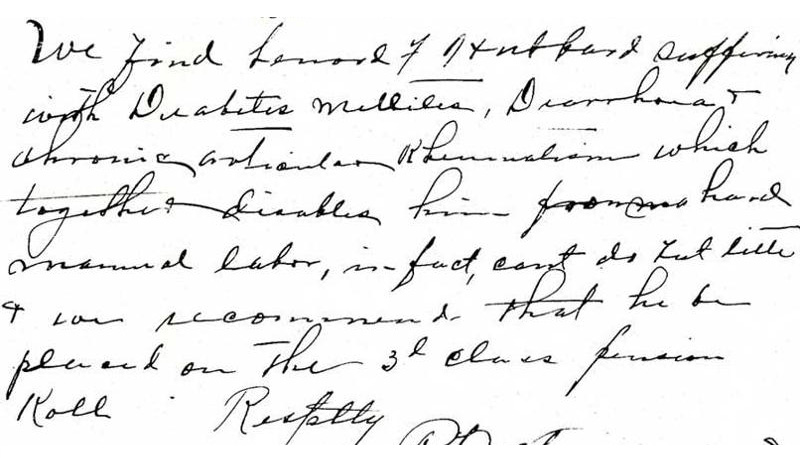 We find Lenord F Hubbard suffering
with Diabetis Mellites, Diarrhoea &
chronic articular Rheumatism which
together disables him from hard
manual labor, in fact, cant do but little
& we recommend that he be
placed on the 3d class pension
Roll Resptlly